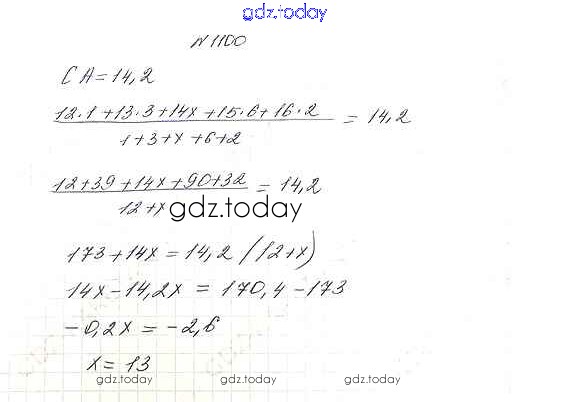 gdz.today
№1100
СА = 14,2
12·1+13·3+14x+15·6+16·2 = 14,2
1+3+x+6+2
12+39+14x+90+32 = 14,2
12+x
gdz.today
173+14x = 14,2 (12+x)
14x-14,2x = 170,4-173
-0,2x = -2,6
x = 13
gdz.today gdz.today gdz.today